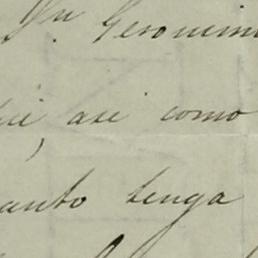 Geronim
asi como
anto tenga